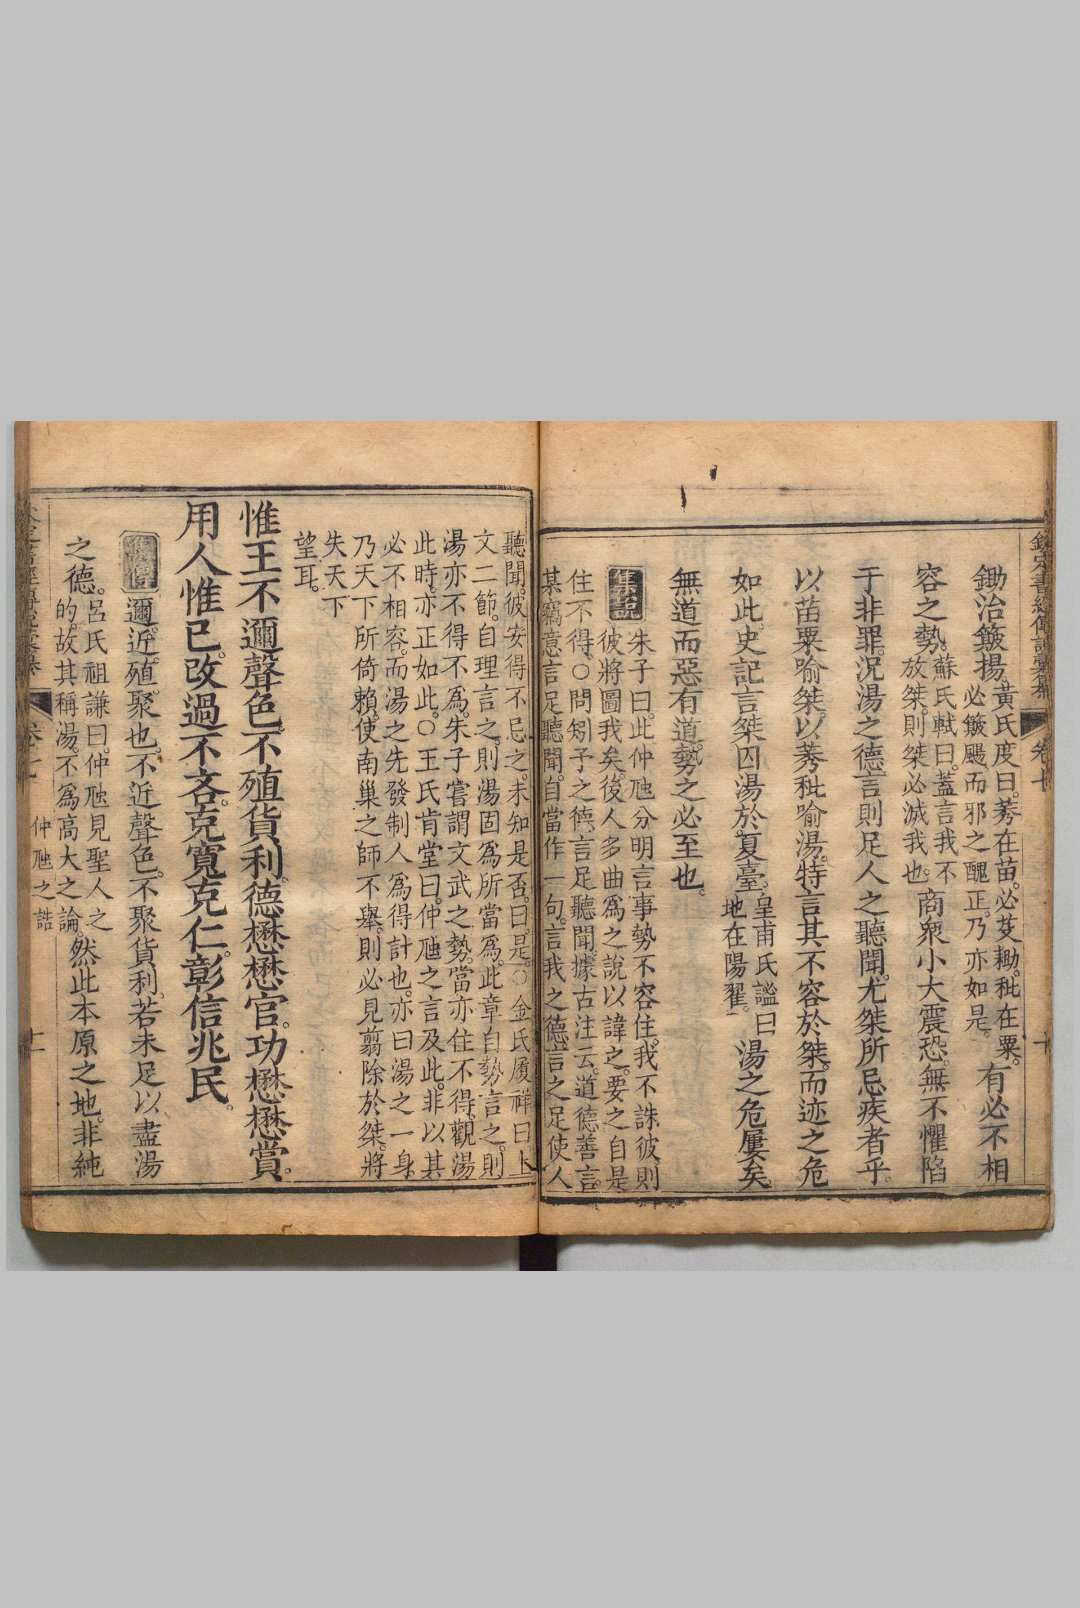 欽定書經傳說彙纂 卷七 十
鋤治簸揚。黃氏度曰。莠在苗。必芟耡。秕在粟。
必簸颺。而邪之醜正。乃亦如是。有必不相
容之勢。蘇氏軾曰。蓋言我不
放桀。則桀必滅我也。商衆小大震恐。無不懼陷
于非罪。況湯之德言則足人之聽聞。尤桀所忌疾者乎。
以苗粟喻桀。以莠秕喻湯。特言其不容於桀。而迹之危
如此。史記言桀囚湯於夏臺。皇甫氏謐曰
地在陽翟。湯之危屢矣。
無道而惡有道。勢之必至也。
集說
朱子曰。此仲虺分明言事勢不容住。我不誅彼。則
彼將圖我矣。後人多曲為之說以諱之。要之自是
住不得。○問。矧予之德。言足聽聞。據古注云。道德善言
某竊意言足聽聞。自當作一句。言我之德。言之足使人
聽聞。彼安得不忌之。未知是否。曰。是。○金氏履祥曰。上
文二節。自理言之。則湯固為所當為。此章自勢言之。則
湯亦不得不為。朱子嘗謂文武之勢。當亦住不得。觀湯
此時。亦正如此。○王氏肯堂曰。仲虺之言及此。非以其
必不相容。而湯之先發制人為得計也。亦曰湯之一身。
乃天下所倚賴。使南巢之師不舉。則必見翦除於桀。將
失天下
望耳。
惟王不邇聲色。不殖貨利。德懋懋官。功懋懋賞。
用人惟已。改過不吝。克寬克仁。彰信兆民。
集傳
邇。近。殖。聚也。不近聲色。不聚貨利。若未足以盡湯
之德。呂氏祖謙曰。仲虺見聖人之
的。故其稱湯。不為高大之論。然此本原之地。非純
卷七 仲虺之誥 十一